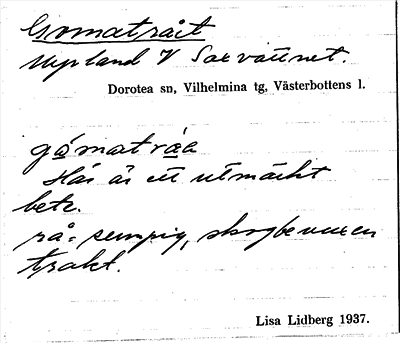 Gomatråit
Nypland V Sarvattnet.
Dorotea sn, Vilhelmina tg, Västerbottens l.
gåmatråa
Här är ett utmärkt
bete.
rå = sumpig, skogbevuxen
trakt.
Lisa Lidberg 1937.